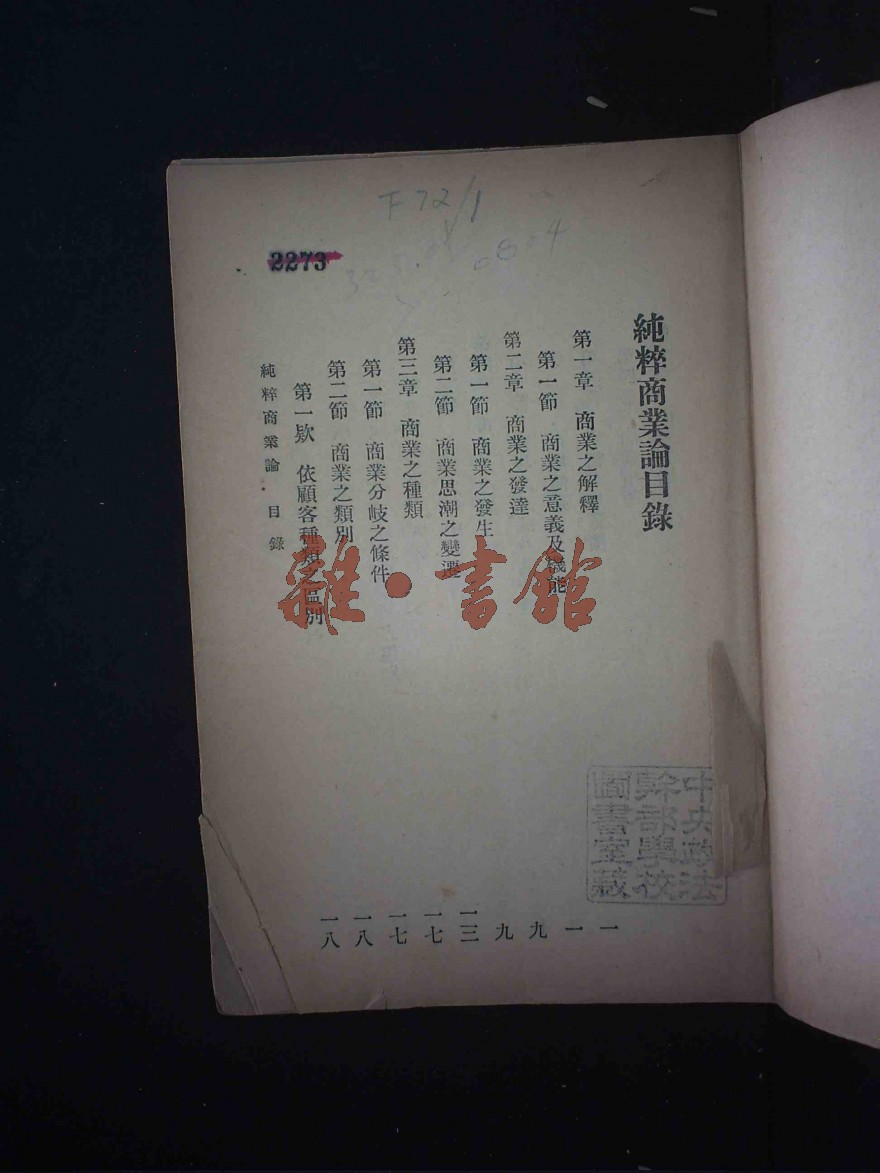 F72/1
2273
純粹商業論目錄
第一章 商業之解釋 一
第一節 商業之意義及機能 一
第二章 商業之發達 九
第一節 商業之發生 九
第二節 商業思潮之變遷 一三
第三章 商業之種類 一七
第一節 商業分岐之條件 一七
第二節 商業之類別 一八
第一欵 依顧客種類之區別 一八
純粹商業論 目錄
雜·書館
中央政法
幹部學校
圖書室藏